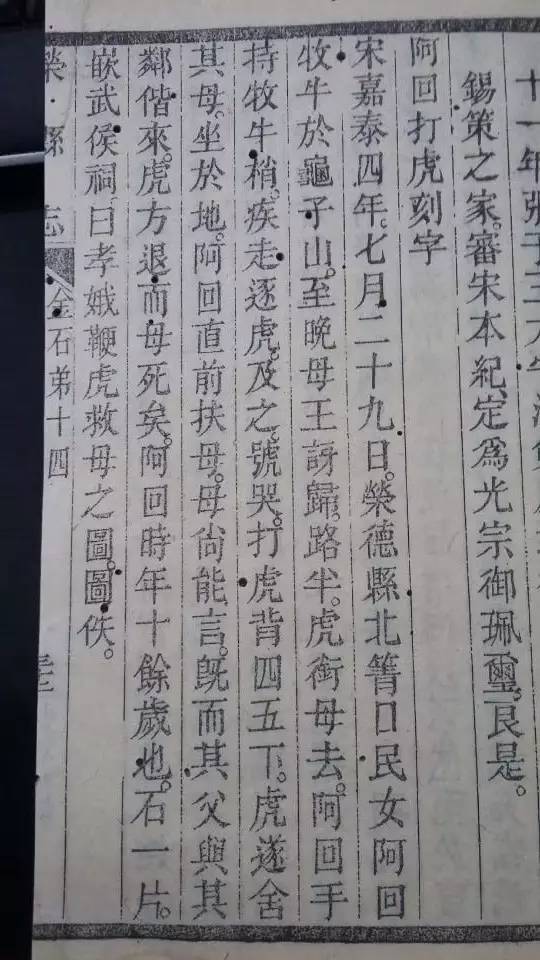 錫策之家。審宋本紀、定爲光宗御珮璽。良是。
阿回打虎刻字
宋嘉泰四年。七月二十九日。榮德縣北箐口民女阿回
牧牛於龜子山。至晚母王訝歸。路半。虎銜母去。阿回手
持牧牛梢。疾走逐虎。及之。號哭。打虎背四五下。虎遂舍
其母。坐於地。阿回直前扶母。母尙能言。旣而其父與其
鄰偕來。虎方退。而母死矣。阿回時年十餘歲也。石一片。
嵌武侯祠。曰孝娥鞭虎救母之圖。圖佚。
榮縣志 金石弟十四